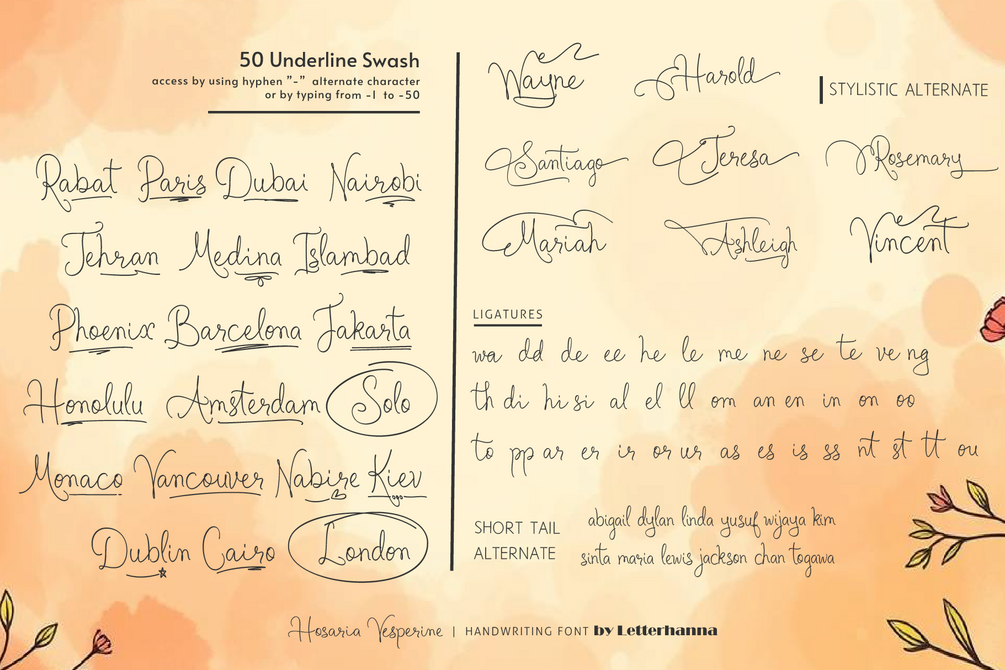 50 Underline Swash
access by using hyphen "-" alternate character
or by typing from -1 to -50
Rabat Paris Dubai Nairobi
Tehran Medina Islambad
Phoenix Barcelona Jakarta
Honolulu Amsterdam Solo
Monaco Vancouver Nabire Kiev
Dublin Cairo London
Wayne Harold
STYLISTIC ALTERNATE
Santiago Teresa Rosemary
Mariah Ashleigh Vincent
LIGATURES
wa dd de ee he le me ne se te ve ng
th di hi si al el ll om an en in on oo
to pp ar er ir or ur as es is ss nt st tt ou
SHORT TAIL
ALTERNATE
abigail dylan linda yusuf wijaya kim
sinta maria lewis jackson chan togawa
Hosaria Vesperine | HANDWRITING FONT by Letterhanna